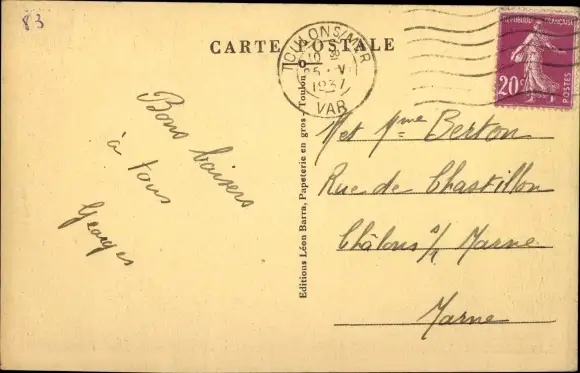 83
CARTE POSTALE
TOULON S/MER
25 · V
1937
VAR
REPUBLIQUE FRANÇAISE
20c
POSTES
Bons baisers
à tous
Georges
Editions Léon Barra, Papeterie en gros - Toulon
M et Mme Berton
Rue de Chastillon
Châlons s/ Marne
Marne